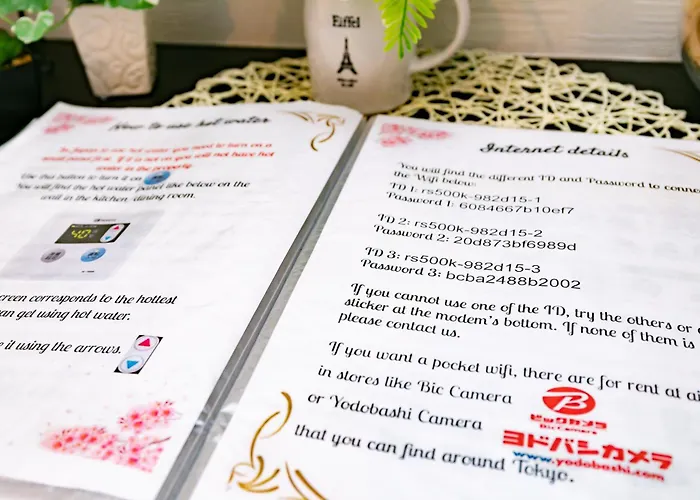 Eiffel
How to use hot water
In Japan to use hot water you need to turn on a
small panel first. If it is not on you will not have hot
water in the property.
Use this button to turn it on
You will find the hot water panel like below on the
wall in the kitchen/dining room.
40
creen corresponds to the hottest
an get using hot water.
e it using the arrows.
Internet details
You will find the different ID and Password to conne
the Wifi below:
ID 1: rs500k-982d15-1
Password 1: 6084667b10ef7
ID 2: rs500k-982d15-2
Password 2: 20d873bf6989d
ID 3: rs500k-982d15-3
Password 3: bcba2488b2002
If you cannot use one of the ID, try the others or
sticker at the modem's bottom. If none of them is
please contact us.
If you want a pocket wifi, there are for rent at ai
in stores like Bic Camera
B
ビックカメラ
BicCamera
or Yodobashi Camera
ヨドバシカメラ
www.yodobashi.com
that you can find around Tokyo.